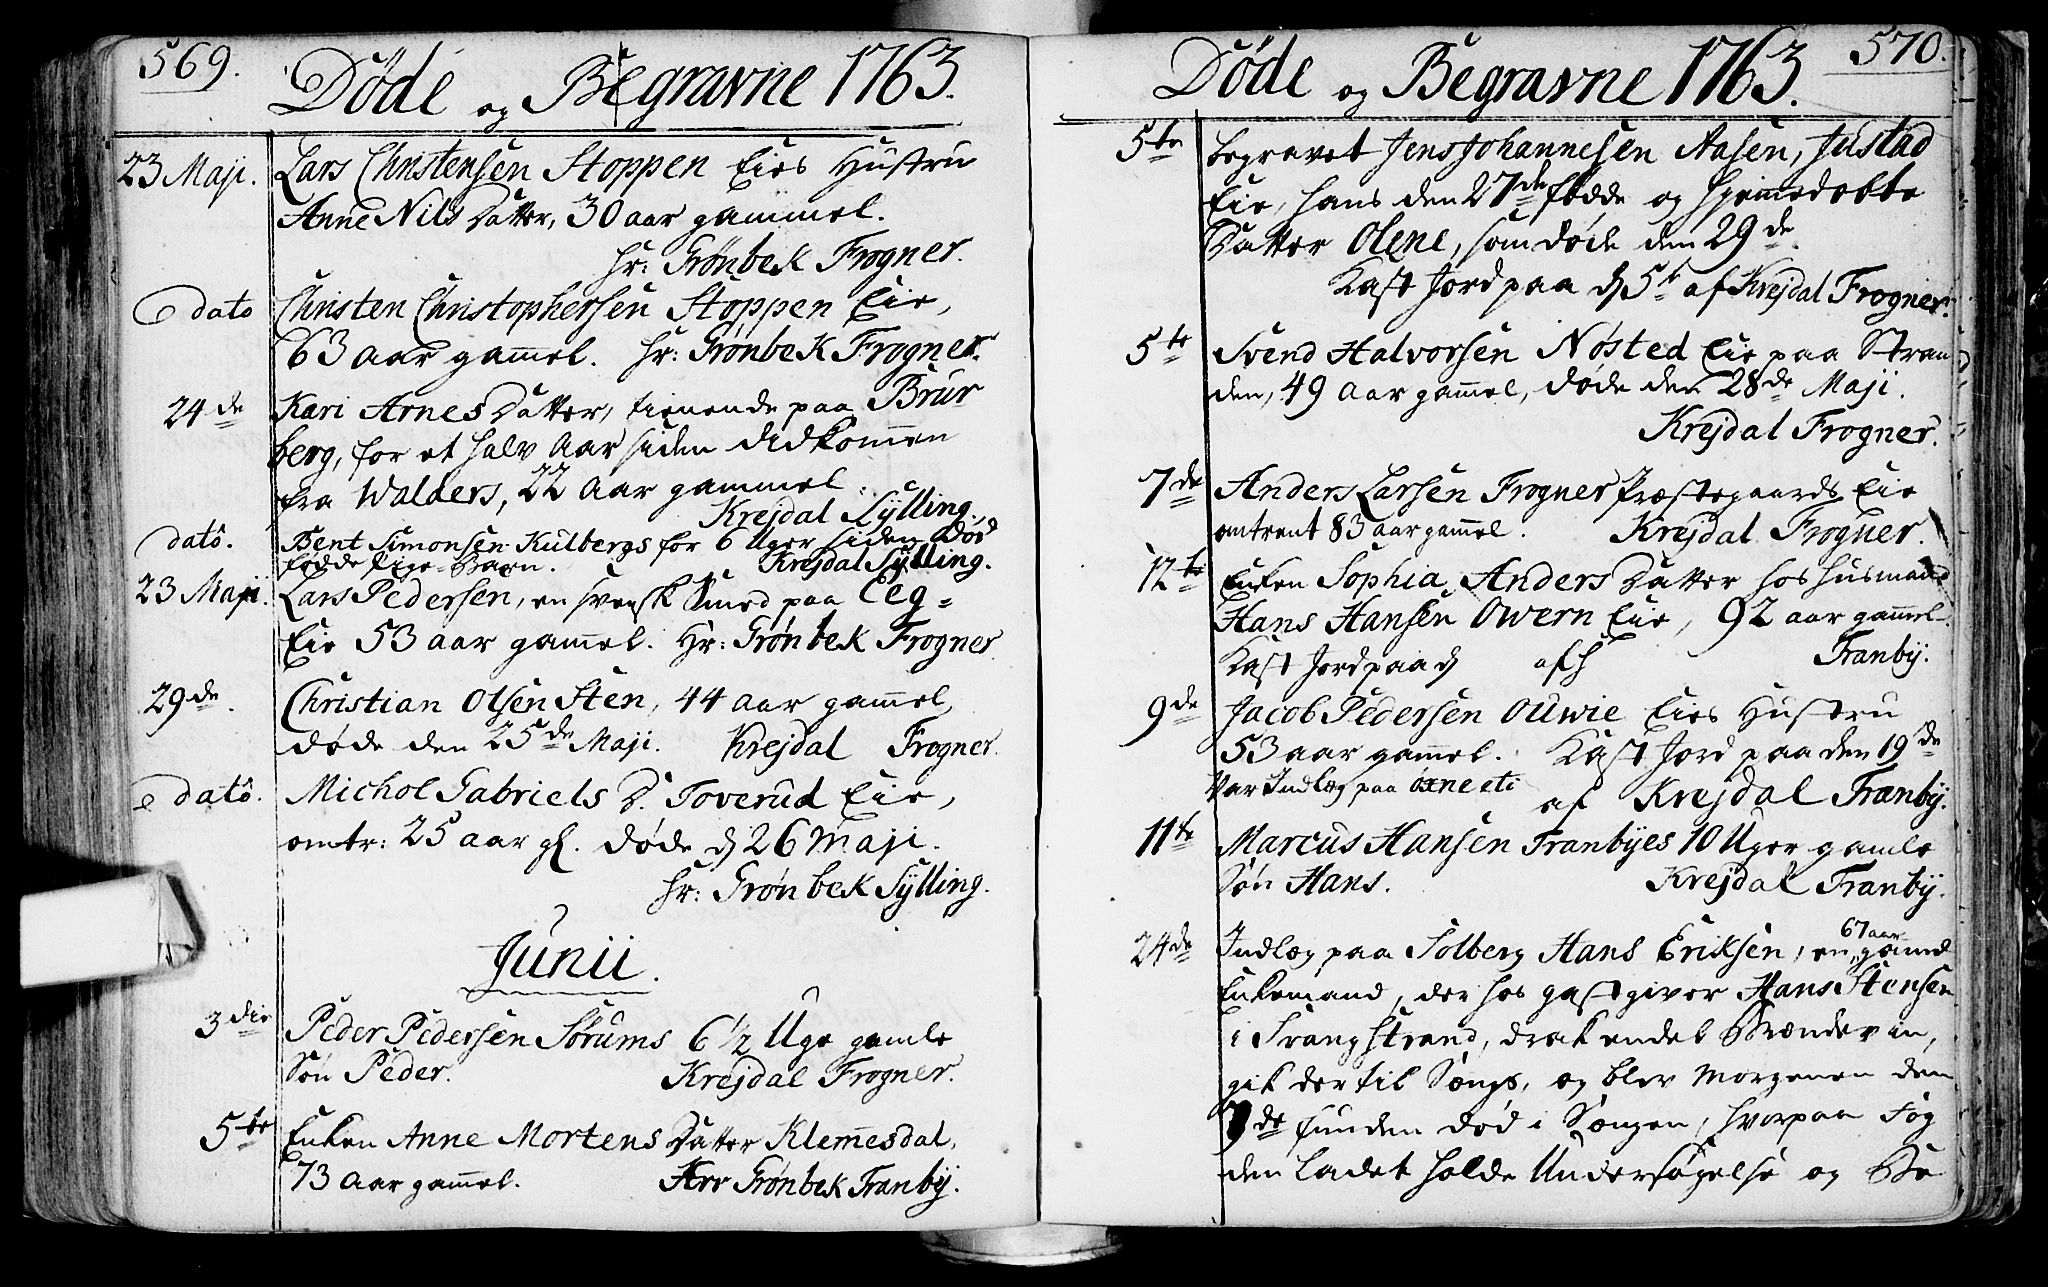 569.
Döde og Begravne 1763.
23 Maji. Lars Christensen Stoppen Eies Hustru
Anne Nils Datter, 30 aar gammel.
Hr: Grönbek Frogner.
e dato Christen Christophersen Stoppen Eie,
63 aar gam̄el. Hr: Grönbek Frogner.
24de Kari Arnes Datter, tienende paa Brur
berg, for et halv Aar siden didkom̄en
fra Walders, 22 Aar gammel.
Krejdal Sylling.
dato. Bent Simonsen Kulbergs for 6 Uger siden Död
födde Pige-Barn. Krejdal Sylling.
23 Maji. Lars Pedersen, en svensk Smed paa Eeg-
Eie 53 aar gam̄el. Hr: Grönbek Frogner
29de. Christian Olsen Sten, 44 Aar gam̄el,
döde den 25de Maji. Krejdal Frogner.
e dato. Michol Gabriels D. Toverud Eie,
omtr: 25 aar gl. döde d 26 Maji.
Hr: Grönbek Sylling.
Junii.
3die Peder Pedersen Sörums 6 1/2 Uge gamle
Sön Peder. Krejdal Frogner.
5te Enken Anne Mortens Datter Klem̄esdal,
73 Aar gam̄el. Hrr Grönbek Tranby.
570.
Döde og Begravne 1763.
5te begravet Jens Johannesen Aasen, Justad
Eie, hans den 27de födde og hiem̄edöbte
Datter Olene, som döde den 29de
Kast Jord paa d 5te af Krejdal Frogner.
5te Svend Halvorsen Nösted Eie paa Stran
den, 49 Aar gam̄el, döde den 28de Maji.
Krejdal Frogner.
7de Anders Larsen Frogner Præstegaards Eie
omtrent 83 aar gam̄el. Krejdal Frogner.
12te Enken Sophia Anders Datter hos Husmand
Hans Hansen Owern Eie, 92 aar gam̄el.
Kast Jord paa d af H Tranby.
9de Jacob Pedersen Ouwie Eies Hustru
53 aar gam̄el. Kast Jord paa den 19de
Var Indlæg paa Oxne sti af Krejdal Tranby.
11te Marcus Hansen Tranbyes 10 Uger gamle
Sön Hans. Krejdal Tranby.
67 aar
24de Indlæg paa Solberg Hans Eriksen, en gam̄el
Enkemand, der hos Gastgiver Hans Stensen
i Trangstrand, drak endel Brændeviin,
gik der til Sængs, og blev Morgenen den
7de funden död i Sængen, hvorpaa Fog
den ladet holde Undersögelse og Be